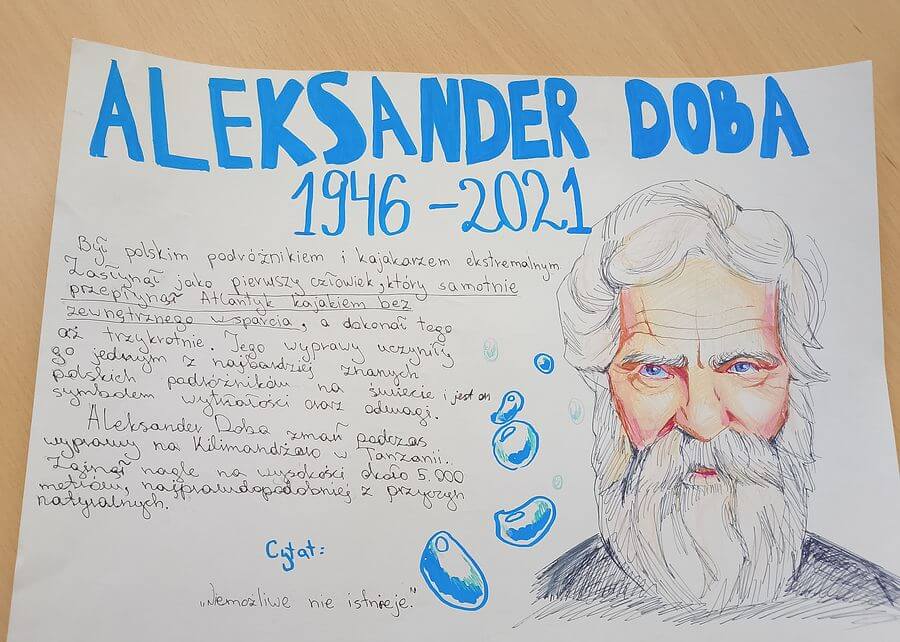 ALEKSANDER DOBA
1946-2021
Był polskim podróżnikiem i kajakarzem ekstremalnym.
Zasłynął jako pierwszy człowiek, który samotnie
przepłynął Atlantyk kajakiem bez
zewnętrznego wsparcia, a dokonał tego
aż trzykrotnie. Jego wyprawy uczyniły
go jednym z najbardziej znanych
polskich podróżników na świecie i jest on
symbolem wytrwałości oraz odwagi.
Aleksander Doba zmarł podczas
wyprawy na Kilimandżaro w Tanzanii.
Zginął nagle na wysokości około 5.000
metrów, najprawdopodobniej z przyczyn
naturalnych.
Cytat:
„Niemożliwe nie istnieje."